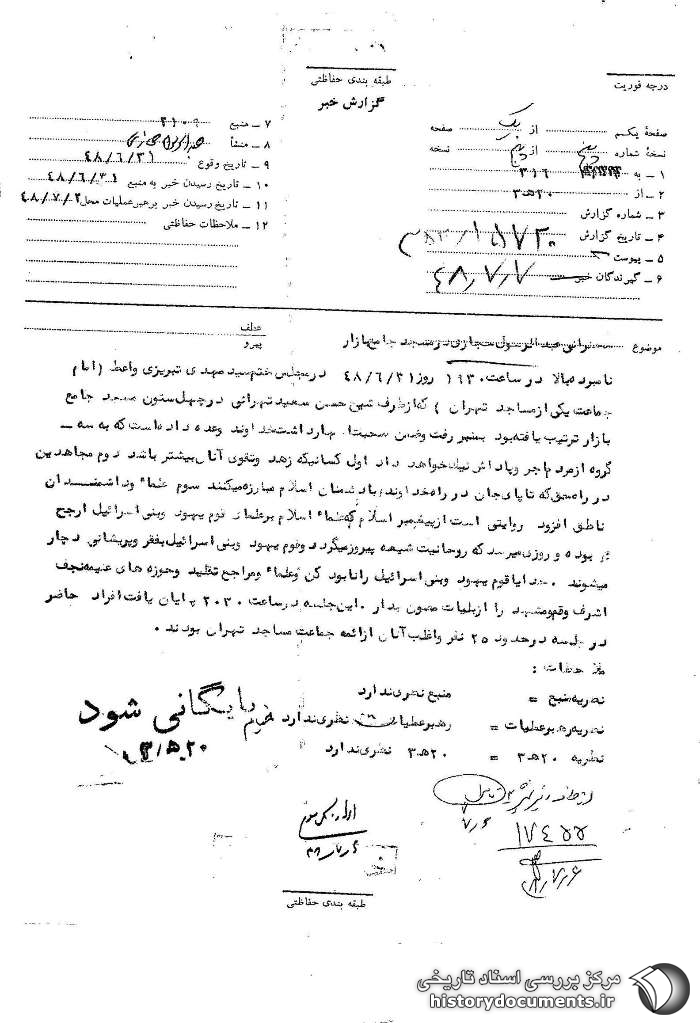 طبقه بندی حفاظتی
گزارش خبر
درجه فوریت
صفحهٔ یکم از یک صفحه
نسخهٔ شماره از نسخه
۱ ـ به ۳۱۶
۲ ـ از ۲۰ه۳
۳ ـ شماره گزارش
۴ ـ تاریخ گزارش
۵ ـ پیوست
۶ ـ گیرندگان خبر
۴۸٫۷٫۷
۷ ـ منبع
۸ ـ منشأ
۹ ـ تاریخ وقوع ۴۸/۶/۳۱
۱۰ ـ تاریخ رسیدن خبر به منبع ۴۸/۶/۳۱
۱۱ ـ تاریخ رسیدن خبر برهبر عملیات محل ۴۸/۷/۲
۱۲ ـ ملاحظات حفاظتی
موضوع سخنرانی عبدالرسول حجازی در مسجد جامع بازار
عطف
پیرو
نامبرده بالا در ساعت ۱۹۳۰ روز ۴۸/۶/۳۱ در مجلس ختم سید مهدی تبریزی واعظ (امام
جماعت یکی از مساجد تهران ) که از طرف شیخ حسن سعید تهرانی در چهل ستون مسجد جامع
بازار ترتیب یافته بود بمنبر رفت وضمن صحبت اظهار داشت خداوند وعده داده است که به سه ـ
گروه از مردم اجر وپاداش نیک خواهد داد اول کسانیکه زهد وتقوی آنان بیشتر باشد دوم مجاهدین
در راه حق که تا پای جان در راه خداوند با دشمنان اسلام مبارزه میکنند سوم علماء ودانشمندان
ناطق افزود روایتی است از پیغمبر اسلام که علماء اسلام بر علماء قوم یهود وبنی اسرائیل ارجح
تر بوده و روزی میرسد که روحانیت شیعه پیروز میگردد وقوم یهود وبنی اسرائیل بفقر وپریشانی دچار
میشوند . خدایا قوم یهود وبنی اسرائیل را نابود کن وعلماء ومراجع تقلید وحوزه های علمیه نجف
اشرف وقم ومشهد را از بلیات مصون بدار . این جلسه در ساعت ۲۰۳۰ پایان یافت افراد حاضر
در جلسه در حدود ۲۵ نفر واغلب آنان از ائمه جماعت مساجد تهران بودند .
ملاحظات :
نظریه منبع = منبع نظری ندارد
نظریه رهبر عملیات = رهبر عملیات نظری ندارد
نظریه ۲۰ه۳ = ۲۰ه۳ نظری ندارد
بایگانی شود
۲۰ه۳
۱۷۴۵۵
طبقه بندی حفاظتی
مرکز بررسی اسناد تاریخی
historydocuments.ir